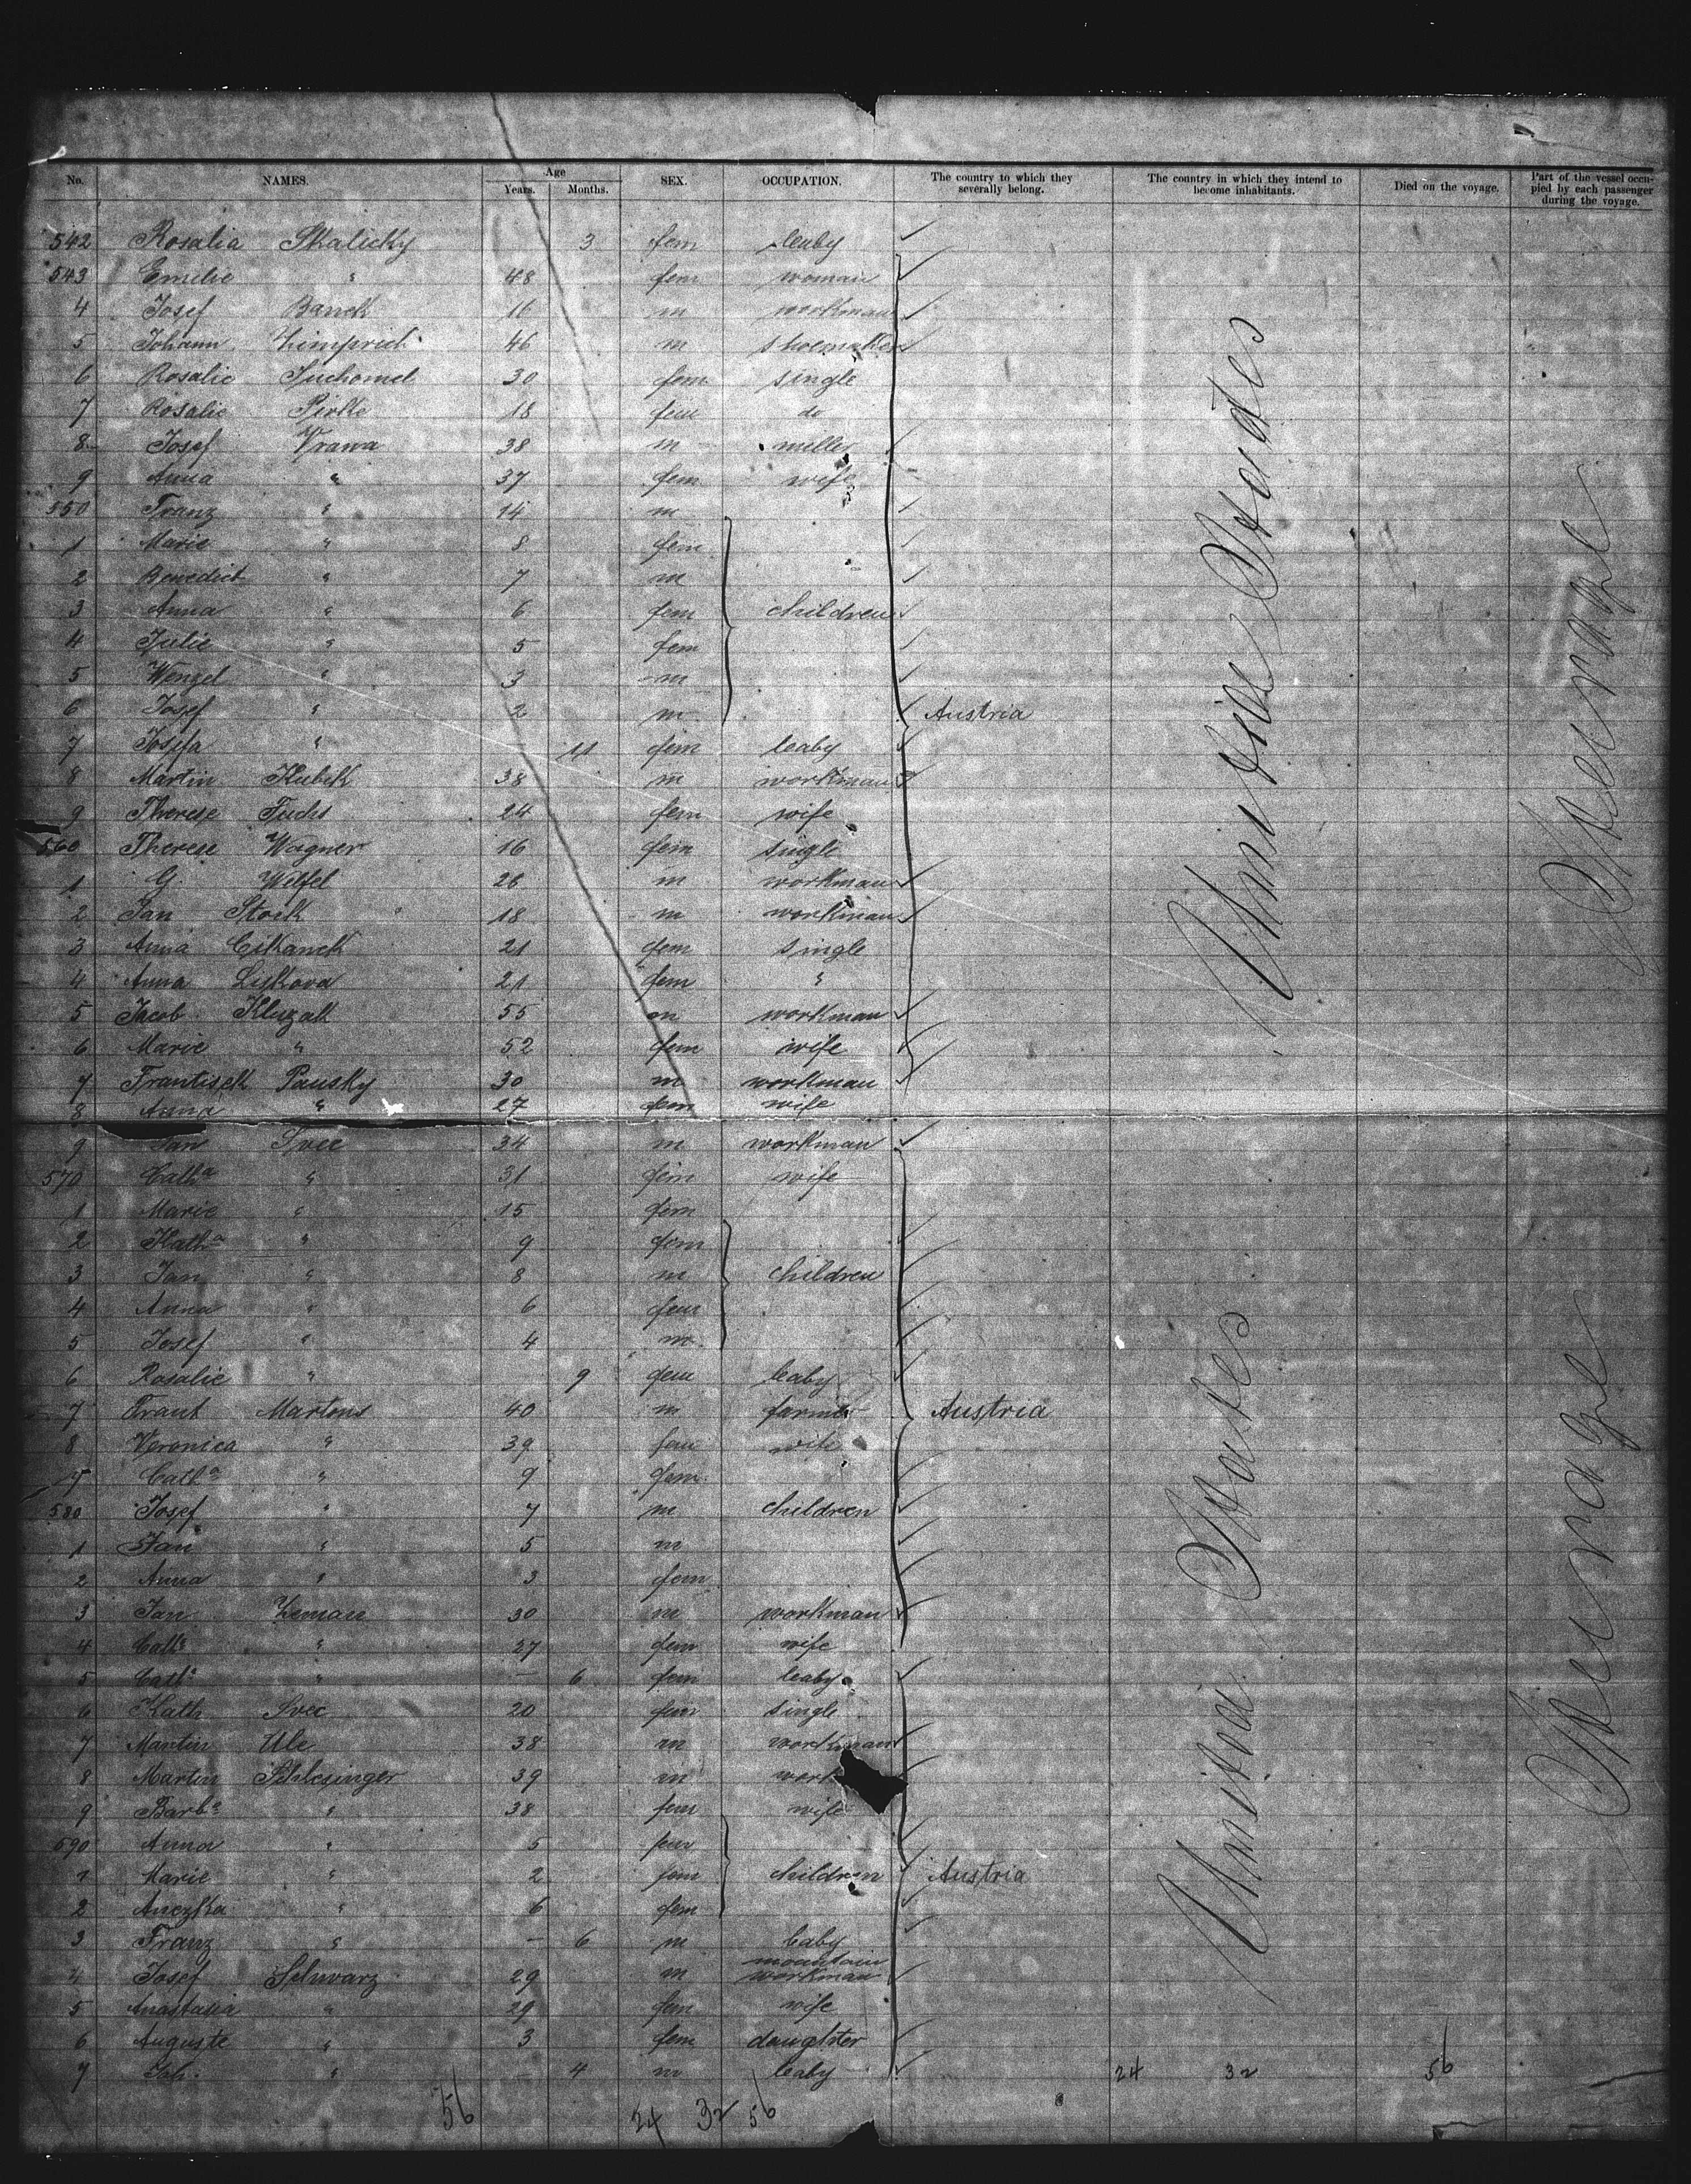 No. NAMES. Age Years. Months. SEX. OCCUPATION. The country to which they severally belong. The country in which they intend to become inhabitants. Died on the voyage. Part of the vessel occupied by each passenger during the voyage.
542 Rosalia Skalicky 3 fem baby
543 Emilie " 48 fem woman
4 Josef 16 m workman
5 Johann 46 m shoemaker
6 Rosalie Suchomel 30 fem single
7 Rosalie 18 fem do
8 Josef Vrana 38 m miller
9 Anna " 37 fem wife
550 Franz " 14 m
1 Marie " 8 fem
2 Benedict " 7 m
3 Anna " 6 fem children
4 Julie " 5 fem
5 Wenzel " 3 m
6 Josef " 2 m Austria
7 Josefa " 11 fem baby
8 Martin Kubik 38 m workman
9 Therese Fuchs 24 fem wife
560 Therese Wagner 16 fem single
1 G. Welfel 26 m workman
2 Jan Stock 18 m workman
3 Anna Cikanek 21 fem single
4 Anna Liskova 21 fem "
5 Jacob Kluzak 55 m workman
6 Marie " 52 fem wife
7 Frantisek Pausky 30 m workman
8 Anna " 27 fem wife
9 Jan Svec 34 m workman
570 Cath.a " 31 fem wife
1 Marie " 15 fem
2 Kath.a " 9 fem
3 Jan " 8 m children
4 Anna " 6 fem
5 Josef " 4 m
6 Rosalie " 9 fem baby
7 Frant Martens 40 m farmer Austria
8 Veronica " 39 fem wife
9 Cath.a " 9 fem
580 Josef " 7 m children
1 Jan " 5 m
2 Anna " 3 fem
3 Jan Zeman 30 m workman
4 Cath.a " 27 fem wife
5 Cath.a " — 6 fem baby
6 Kath Svec 20 fem single
7 Martin Ule 38 m workman
8 Martin Schlesinger 39 m work
9 Barb.a " 38 fem wife
590 Anna " 5 fem
1 Marie " 2 fem children Austria
2 " 6 fem
3 Franz " — 6 m baby
4 Josef Schwarz 29 m mountain workman
5 Anastasia " 29 fem wife
6 Auguste " 3 fem daughter
7 Joh. " — 4 m baby
24 32 56
56 24 32 56
United States
Steerage
United States
Steerage